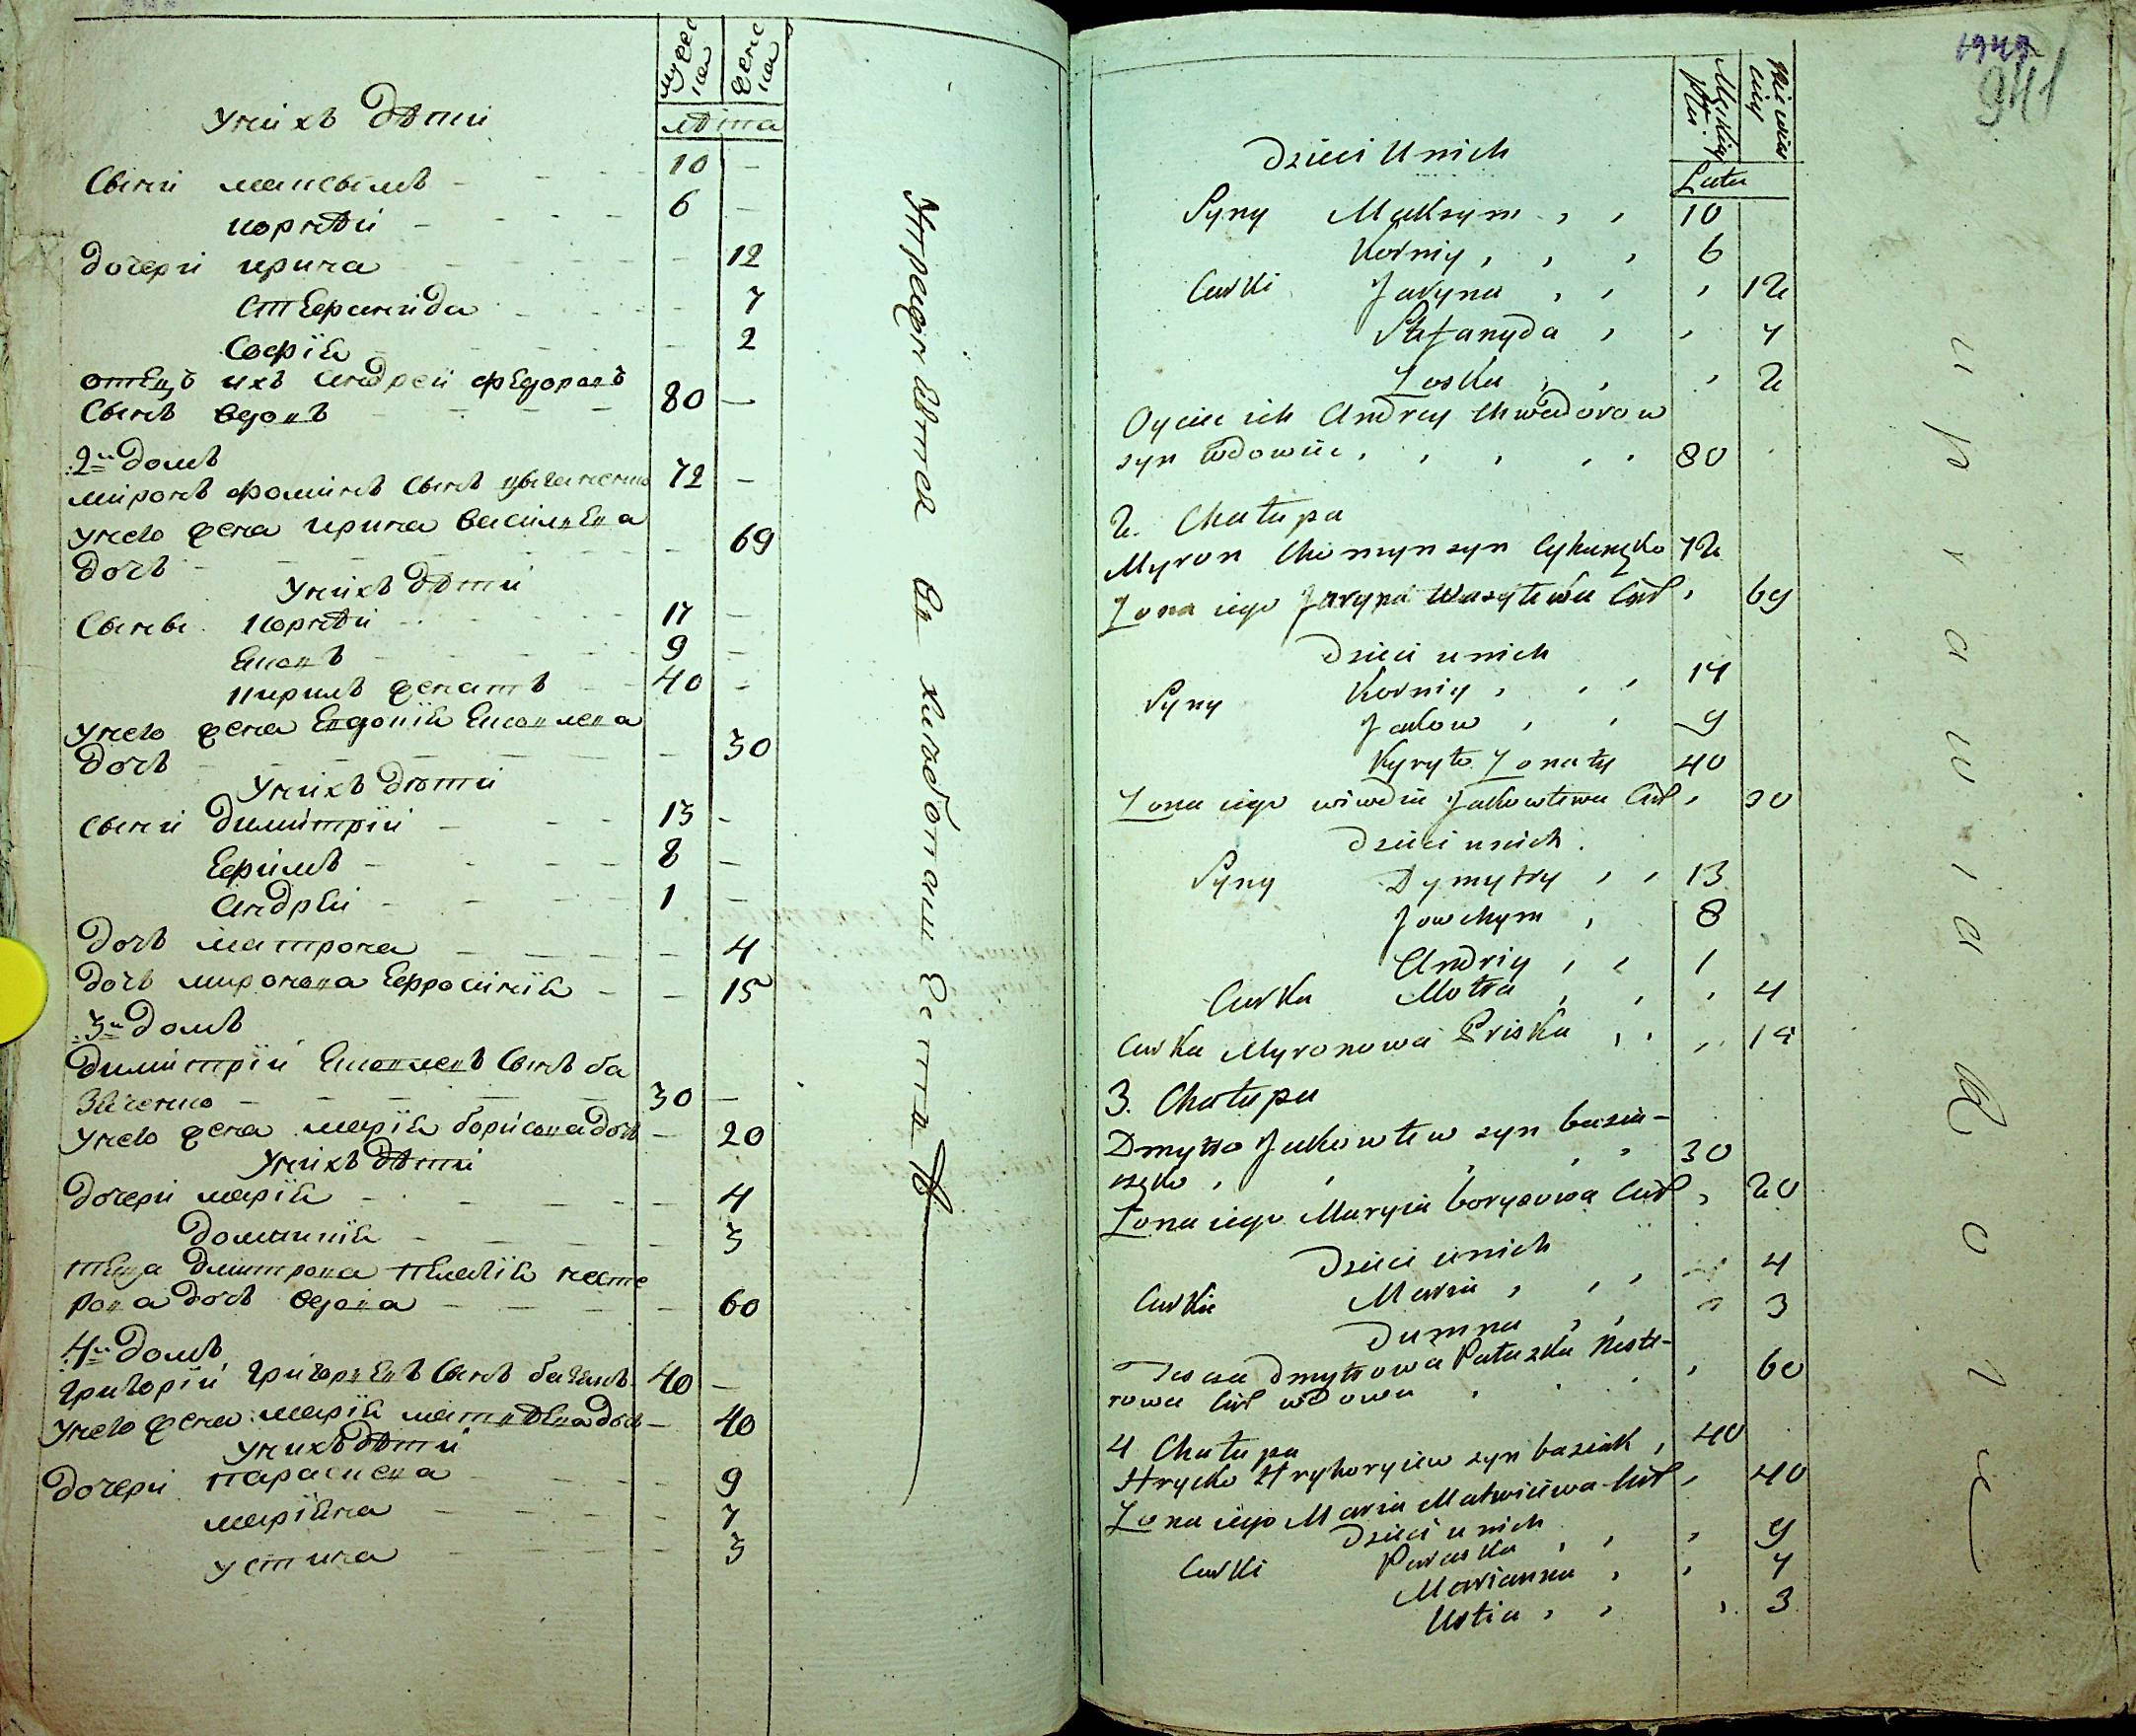 мужеска
женска
лѣта
У нихъ дѣти
Сыни максымъ 10
корнѣй 6
дочери ирина 12
Степанида 7
Софія 2
отецъ ихъ андрей федоровъ
сынъ вдовъ 80
2й домъ
миронъ фоминъ сынъ 72
У него жена ирина васильева
дочь 69
У нихъ дѣти
Сыны корнѣй 17
Яковъ 9
кирилъ женатъ 40
У него жена Евдокія Яковлева
дочь 30
У нихъ дѣти
сыни димитрій 13
Ефимъ 8
андрей 1
дочь матрона 4
дочь миронова Ефросинія 15
3й домъ
димитрій Яковлевъ сынъ ба
30
У него жена марія борисова дочь 20
У нихъ дѣти
дочери марія 4
домникія 3
теща дмитрова пелагія несте
рова дочь вдова 60
4й домъ
григорій григорьевъ сынъ 40
У него жена марія матвѣева дочь 40
У нихъ дѣти
дочери параскева 9
маріяна 7
устина 3
1949
941
Męskiey Płci
Niewieściey
Lata
Dzieci u nich
Syny Maksym 10
Korniy 6
Curki Jaryna 12
Stefanyda 7
Zoska 2
Oyciec ich Andrey Chwedorow
syn wdowiec 80
2. Chałupa
Myron Chomyn syn 72
Zona iego Jaryna Wasylewa Cur. 69
Dzieci u nich
Syny Korniy 17
Jakow 9
Kyryło Zonaty 40
Zona iego Jakowlewa Cur. 30
Dzieci u nich
Syny Dymytry 13
Jowchym 8
Andriy 1
Curka Motra 4
Curka Myronowa Priska 15
3. Chałupa
Dmytro Jakowlew syn bazia-
szko 30
Zona iego Maryia borysowa Cur. 20
Dzieci u nich
Curki Maria 4
Dumna 3
Tescza Dmytrowa Pałaszka Neste-
rowa Cur. wdowa 60
4 Chałupa
Hryćko Hryhoryiew syn baziak 40
Zona iego Maria Matwiiewa Cur. 40
Dzieci u nich
Curki Paraska 9
Marianna 7
Ustia 3